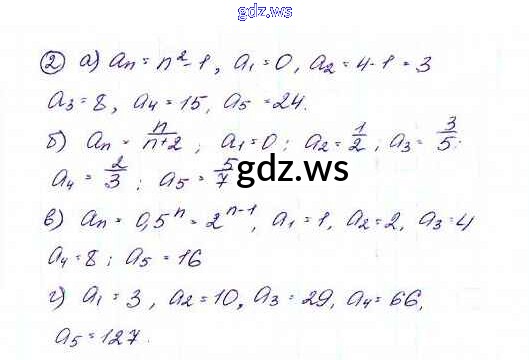 gdz.ws
② а) aₙ = n² - 1, a₁ = 0, a₂ = 4-1 = 3
a₃ = 8, a₄ = 15, a₅ = 24.
б) aₙ = n/(n+2); a₁ = 0; a₂ = 1/2; a₃ = 3/5;
a₄ = 2/3; a₅ = 5/7
gdz.ws
в) aₙ = 0,5ⁿ = 2ⁿ⁻¹, a₁ = 1, a₂ = 2, a₃ = 4
a₄ = 8; a₅ = 16
г) a₁ = 3, a₂ = 10, a₃ = 29, a₄ = 66,
a₅ = 127.